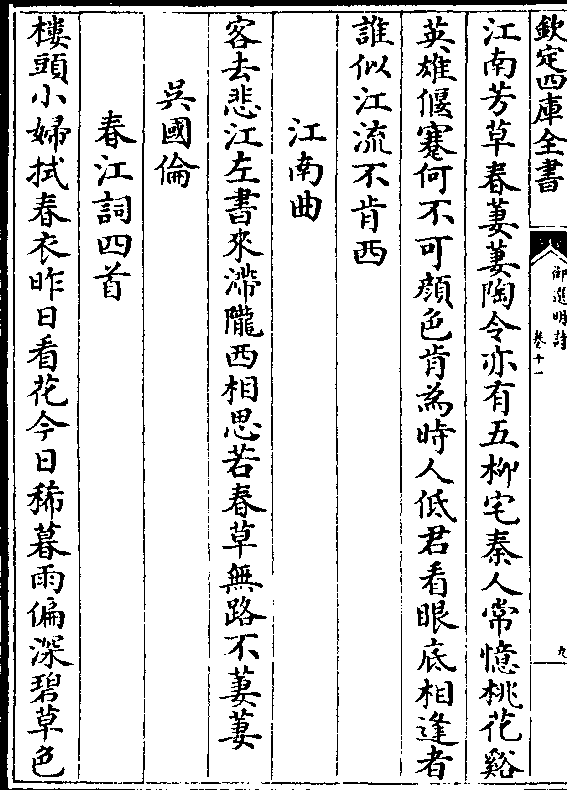 欽定四庫全書
御選明詩
卷十一
九
江南芳草春萋萋陶令亦有五柳宅秦人常憶桃花谿
英雄偃蹇何不可顔色肯為時人低君看眼底相逢者
誰似江流不肯西
江南曲
客去悲江左書來滯隴西相思若春草無路不萋萋
吳國倫
春江詞四首
樓頭小婦拭春衣昨日看花今日稀暮雨偏深碧草色